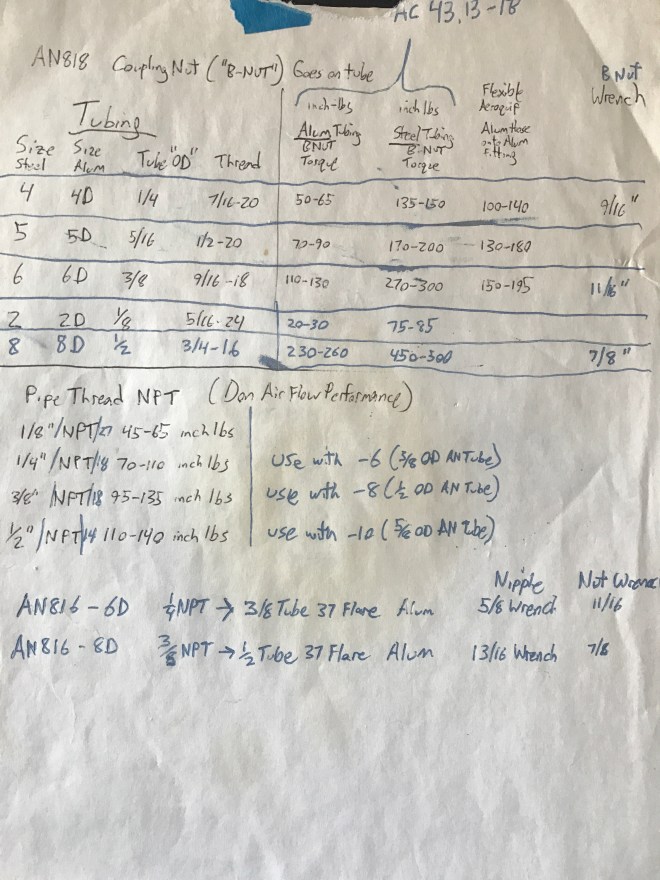 AC 43.13-1B
AN818 Coupling Nut ("B-NUT") Goes on tube
B Nut Wrench
inch-lbs inch lbs Flexible Aeroquip
Tubing
Alum Tubing B NUT Torque
Steel Tubing B-NUT Torque
Alum Hose onto Alum Fitting
Size Steel Size Alum Tube "OD" Thread
4 4D 1/4 7/16-20 50-65 135-150 100-140 9/16"
5 5D 5/16 1/2-20 70-90 170-200 130-180
6 6D 3/8 9/16-18 110-130 270-300 150-195 11/16"
2 2D 1/8 5/16-24 20-30 75-85
8 8D 1/2 3/4-16 230-260 450-500 7/8"
Pipe Thread NPT (Don Air Flow Performance)
1/8"/NPT/27 45-65 inch lbs
1/4"/NPT/18 70-110 inch lbs use with -6 (3/8 OD AN Tube)
3/8" /NPT/18 95-135 inch lbs use with -8 (1/2 OD AN Tube)
1/2"/NPT/14 110-140 inch lbs use with -10 (5/8 OD AN Tube)
Nipple Nut Wrench
AN816-6D 1/4 NPT → 3/8 Tube 37 Flare Alum 5/8 Wrench 11/16
AN816-8D 3/8 NPT → 1/2 Tube 37 Flare Alum 13/16 Wrench 7/8